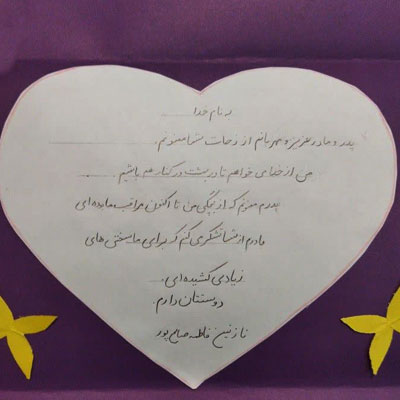 به نام خدا
پدر و مادر عزیز و مهربانم از زحمات شما ممنونم.
من از خدا می خواهم تا در بهشت در کنار هم باشیم.
پدرم ممنونم که از بچگی من تا اکنون مراقب ما بوده ای
مادرم از شما تشکر می کنم که برای ما سختی های
زیادی کشیده ای.
دوستتان دارم.
نازنین فاطمه صالح پور